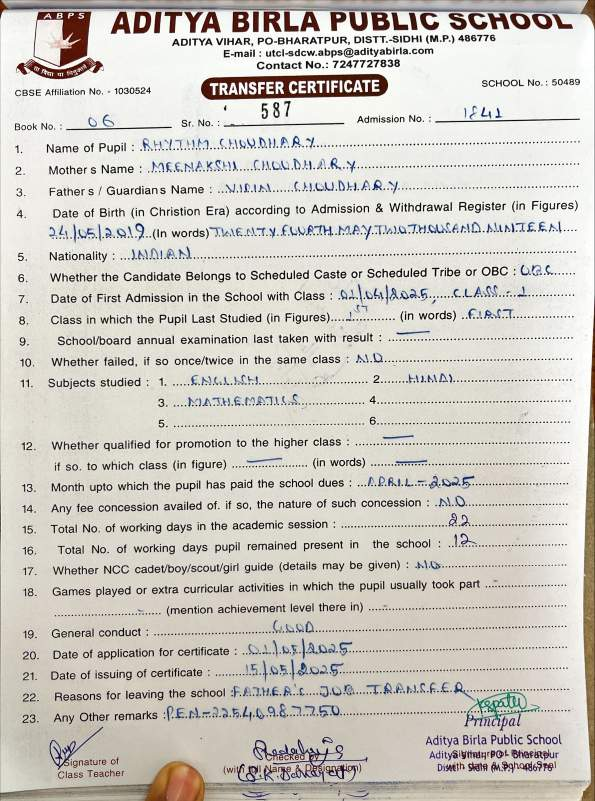 ABPS
ADITYA BIRLA PUBLIC SCHOOL
ADITYA VIHAR, PO-BHARATPUR, DISTT.-SIDHI (M.P.) 486776
E-mail : utcl-sdcw.abps@adityabirla.com
Contact No.: 7247727838
CBSE Affiliation No. - 1030524
TRANSFER CERTIFICATE
SCHOOL No.: 50489
Book No.: 06 Sr. No.: 587 Admission No.: 1841
1. Name of Pupil : RHYTHM CHOUDHARY
2. Mother s Name : MEENAKSHI CHOUDHARY
3. Father s / Guardian s Name : VIPIN CHOUDHARY
4. Date of Birth (in Christion Era) according to Admission & Withdrawal Register (in Figures)
24/05/2019 (In words) TWENTY FOURTH MAY TWO THOUSAND NINTEEN
5. Nationality : INDIAN
6. Whether the Candidate Belongs to Scheduled Caste or Scheduled Tribe or OBC : OBC
7. Date of First Admission in the School with Class : 01/04/2025, CLASS - 1
8. Class in which the Pupil Last Studied (in Figures) 1ST (in words) FIRST
9. School/board annual examination last taken with result : —
10. Whether failed, if so once/twice in the same class : NO
11. Subjects studied : 1. ENGLISH 2. HINDI
3. MATHEMATICS 4.
5. 6.
12. Whether qualified for promotion to the higher class : —
if so. to which class (in figure) — (in words) —
13. Month upto which the pupil has paid the school dues : APRIL-2025
14. Any fee concession availed of. if so, the nature of such concession : NO
15. Total No. of working days in the academic session : 22
16. Total No. of working days pupil remained present in the school : 12
17. Whether NCC cadet/boy/scout/girl guide (details may be given) : NO
18. Games played or extra curricular activities in which the pupil usually took part —
— (mention achievement level there in) —
19. General conduct : GOOD
20. Date of application for certificate : 01/05/2025
21. Date of issuing of certificate : 15/05/2025
22. Reasons for leaving the school : FATHER'S JOB TRANSFER
23. Any Other remarks : PEN-22540987750
Principal
Aditya Birla Public School
Aditya Vihar, PO- Bharatpur
Distt.- Sidhi (M.P.) - 486776
Signature of Principal
with date & School Seal
Signature of
Class Teacher
Checked by
(with full Name & Designation)